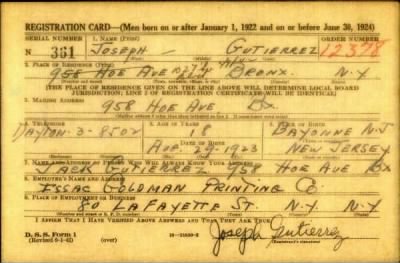 REGISTRATION CARD—(Men born on or after January 1, 1922 and on or before June 30, 1924)
SERIAL NUMBER 1. NAME (Print) ORDER NUMBER
N 361 JOSEPH — GUTIERREZ 12378
(First) (Middle) (Last)
2. PLACE OF RESIDENCE (Print)
958 HOE AVE BRONX. N.Y
(THE PLACE OF RESIDENCE GIVEN ON THE LINE ABOVE WILL DETERMINE LOCAL BOARD JURISDICTION; LINE 2 OF REGISTRATION CERTIFICATE WILL BE IDENTICAL)
3. MAILING ADDRESS
958 HOE AVE BX.
4. TELEPHONE 5. AGE IN YEARS 6. PLACE OF BIRTH
DAYTON-3-8502 18 BAYONNE N-J
DATE OF BIRTH
AUG. 29-1923 NEW JERSEY
7. NAME AND ADDRESS OF PERSON WHO WILL ALWAYS KNOW YOUR ADDRESS
JACK GUTIERREZ 958 HOE AVE BX
8. EMPLOYER'S NAME AND ADDRESS
ISSAC GOLDMAN PRINTING CO
9. PLACE OF EMPLOYMENT OR BUSINESS
80 LAFAYETTE ST. N.Y. N.Y
I AFFIRM THAT I HAVE VERIFIED ABOVE ANSWERS AND THAT THEY ARE TRUE.
D. S. S. Form 1
(Revised 6-1-42) (over) Joseph Gutierrez
(Registrant's signature)